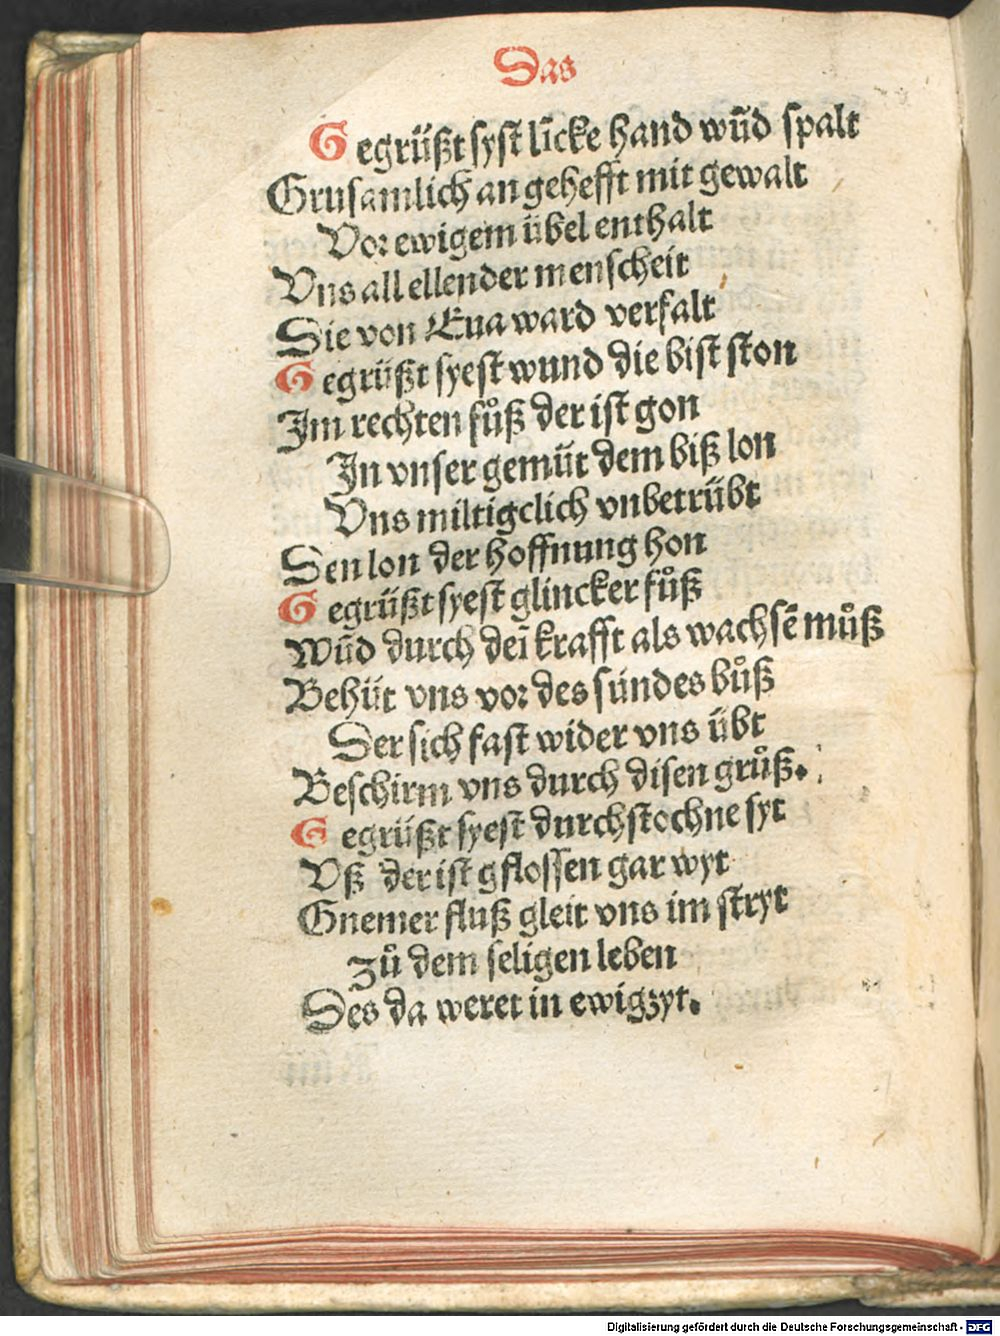 Das
Gegrüßt syst lĩcke hand wũd spalt
Grusamlich an gehefft mit gewalt
Vor ewigem übel enthalt
Vns all ellender menscheit
Die von Eua ward verfalt
Gegrüßt syest wund die bist ston
Im rechten fůß der ist gon
In vnser gemüt dem biß lon
Vns miltigclich vnbetrübt
Den lon der hoffnung hon
Gegrüßt syest glincker fůß
Wũd durch deĩ krafft als wachsẽ můß
Behüt vns vor des sündes bůß
Der sich fast wider vns übt
Beschirm vns durch disen grůß.
Gegrüßt syest durchstochne syt
Vß der ist gflossen gar wyt
Gnemer fluß gleit vns im stryt
Zů dem seligen leben
Des da weret in ewigzyt.
Digitalisierung gefördert durch die Deutsche Forschungsgemeinschaft - DFG